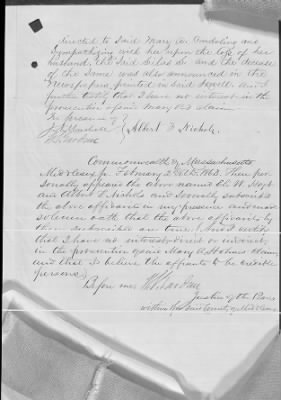 directed to said Mary A. Condoling and
Sympathizing with her upon the loss of her
husband, the said Silas S. and the decease
of the same was also announced in the
newspapers printed in said Lowell. And I
further certify that I have no interest in the
prosecution of said Mary A's claim.
In presence of
Albert F Nichols
Commonwealth of Massachusetts
Middlesex ss. February 24th 1863. Then per-
sonally appears the above named W. Hoyt
and Albert F. Nichols and severally subscribed
the above affidavits in my presence and made
solemn oath that the above affidavits by
them subscribed are true. And I certify
that I have no interest direct or indirect
in the prosecution of said Mary A. Holmes claim
and that I believe the affiants to be credible
persons.
Before me
Justice of the Peace
within & for said County of Middlesex